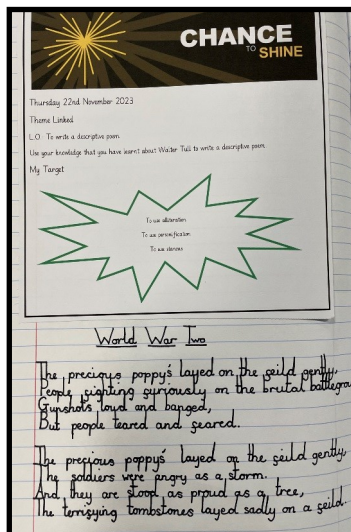 CHANCE
TO SHINE
Thursday 22nd November 2023
Theme Linked
L.O. To write a descriptive poem.
Use your knowledge that you have learnt about Walter Tull to write a descriptive poem.
My Target
To use alliteration
To use personification
To use similes
World War Two
The precious poppy's layed on the feild gently,
People fighting furiously on the brutal battlegrou
Gunshots loud and banged,
But people teared and feared.
The precious poppy's layed on the feild gently,
The soldiers were angry as a storm.
And they are stood as proud as a tree,
The terrifying tombstones layed sadly on a feild.